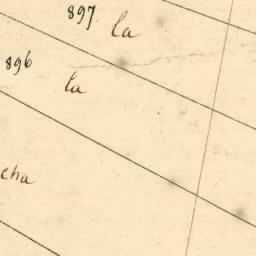 897 la
896 la
cha